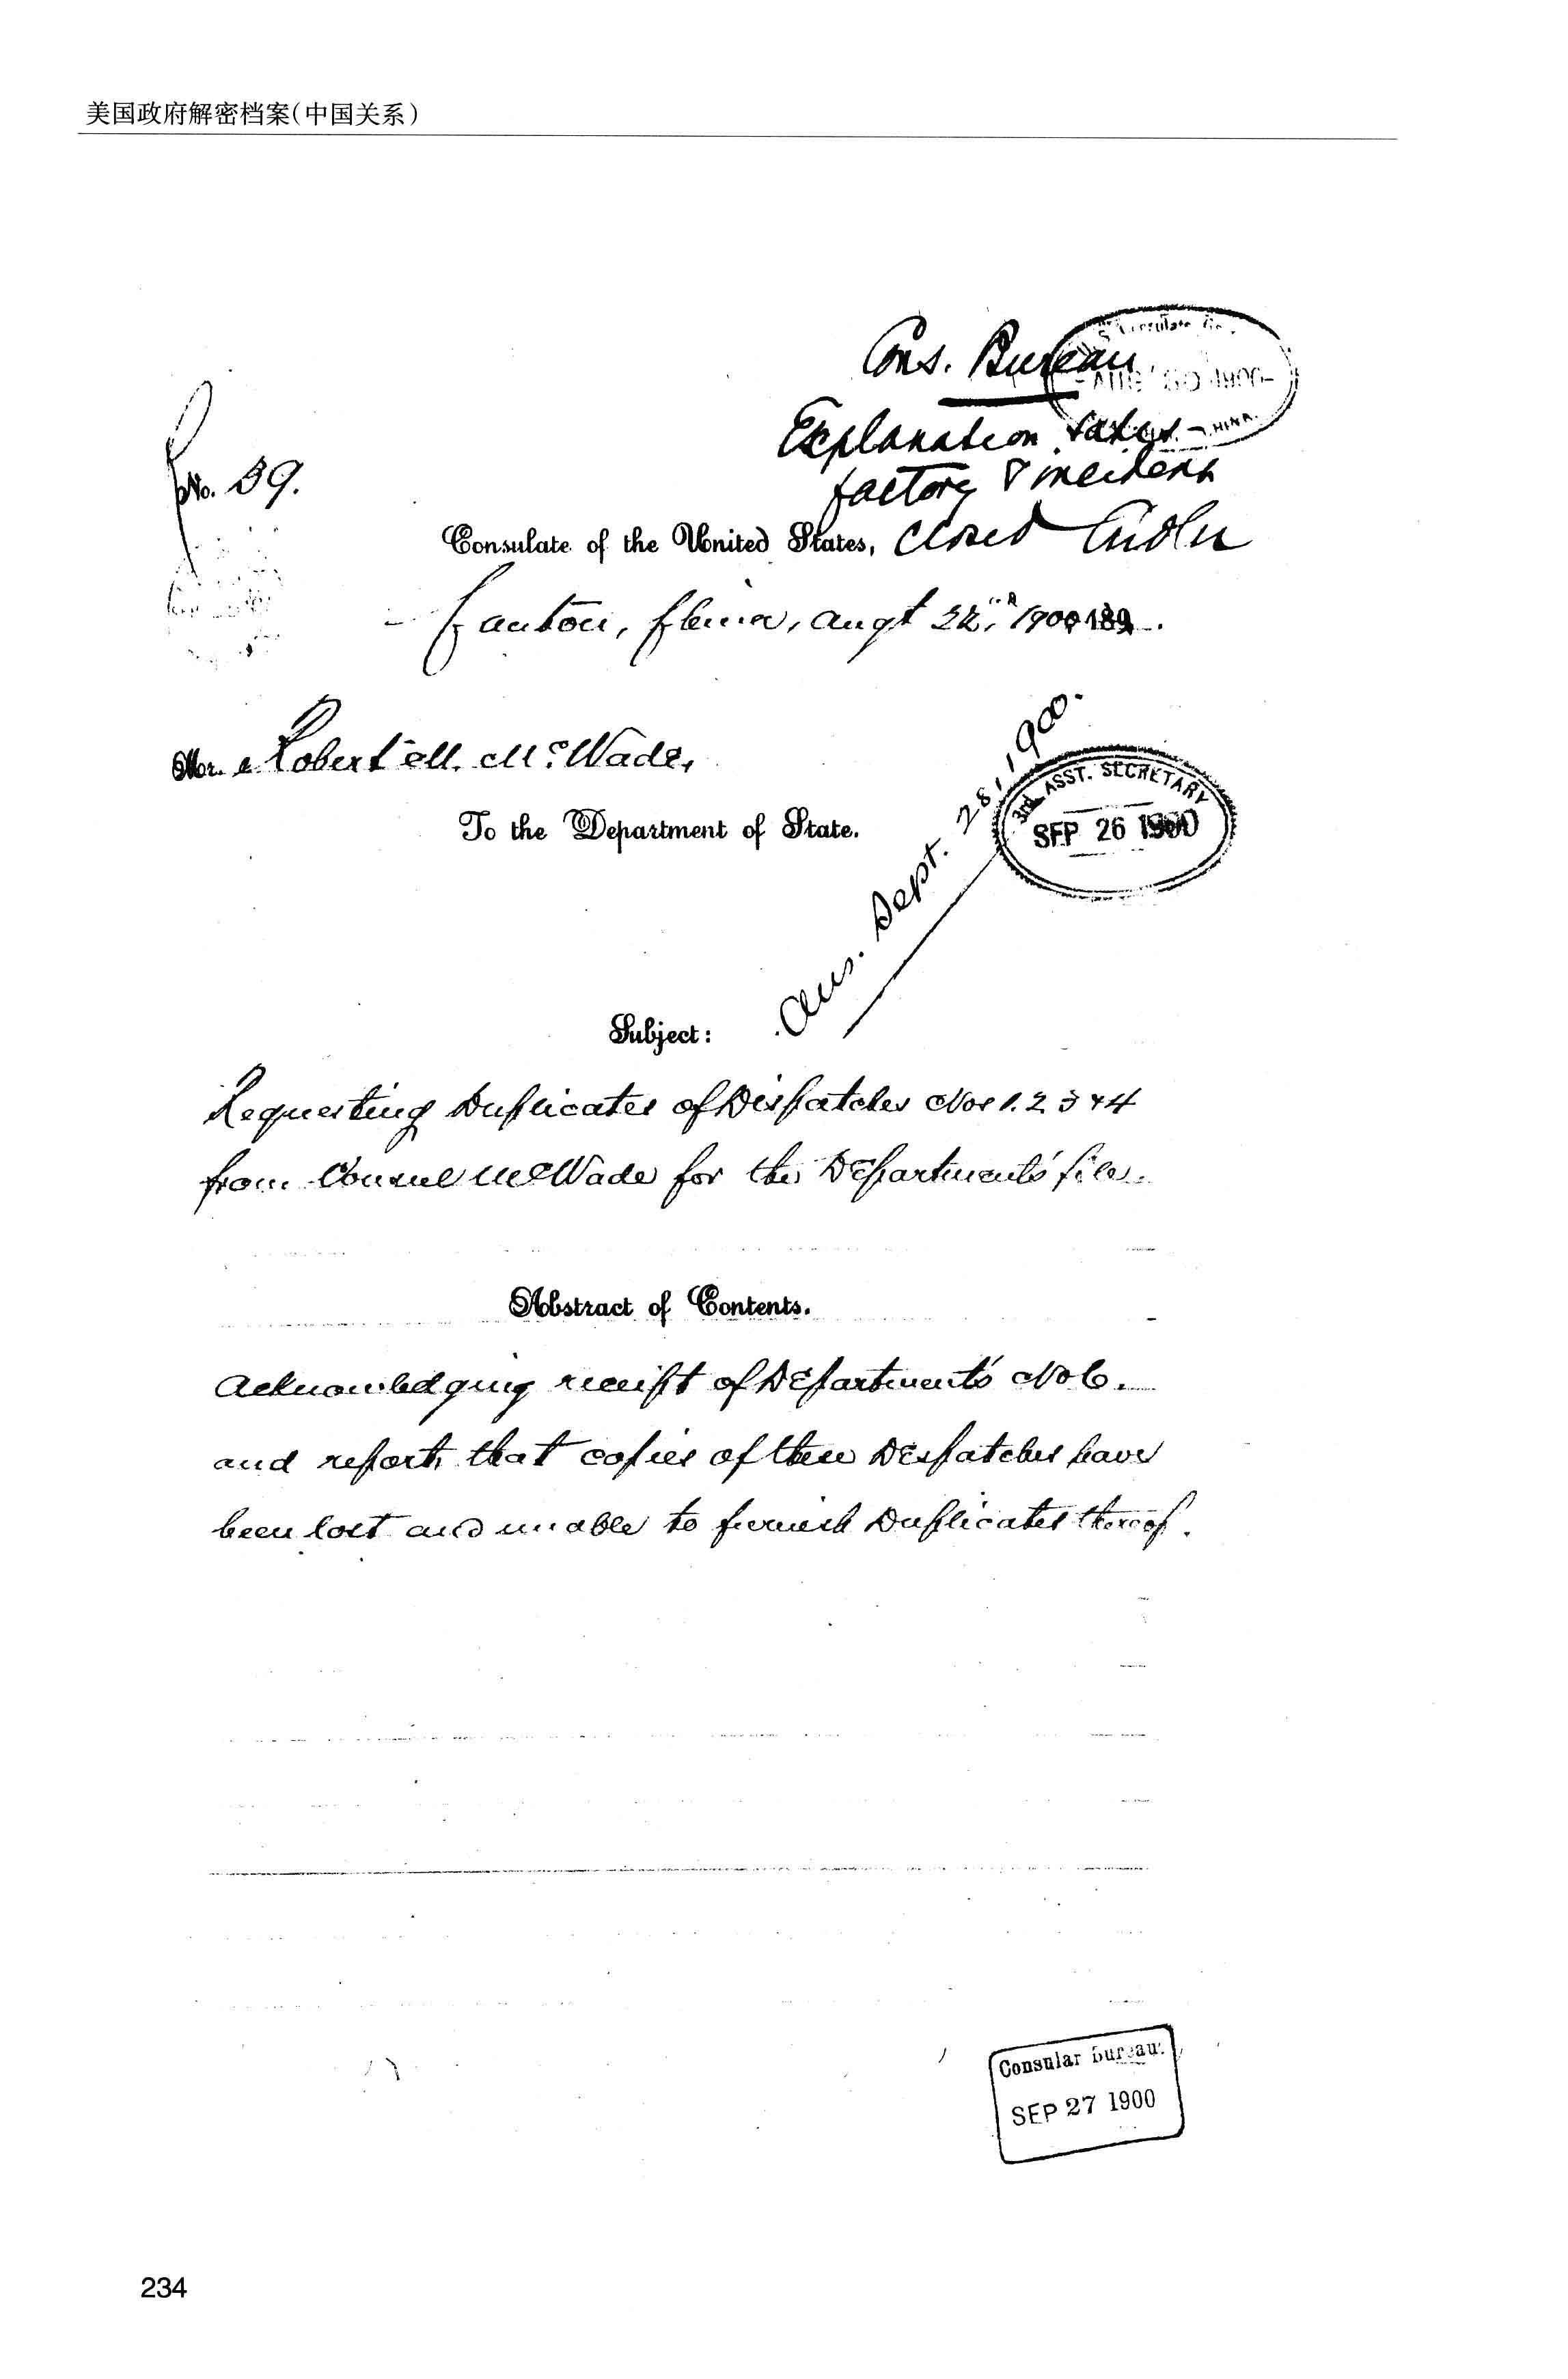 美国政府解密档案(中国关系)
Cons. Bureau
AUG 30 1900
CHINA.
Explanation satis-
factory & incident
No. 39.
Consulate of the United States, closed
Canton, China, Augt 22nd, 1900 189 .
Mr. Robert M. McWade,
To the Department of State.
3rd ASST. SECRETARY
SEP 26 1900
Ans. Sept. 28, 1900.
Subject:
Requesting Duplicates of Dispatches Nos 1. 2 3 & 4
from Consul McWade for the Department's file.
Abstract of Contents.
Acknowledging receipt of Department's No 6.
and reports that copies of these Despatches have
been lost and unable to furnish Duplicates thereof.
Consular Bureau.
SEP 27 1900
234